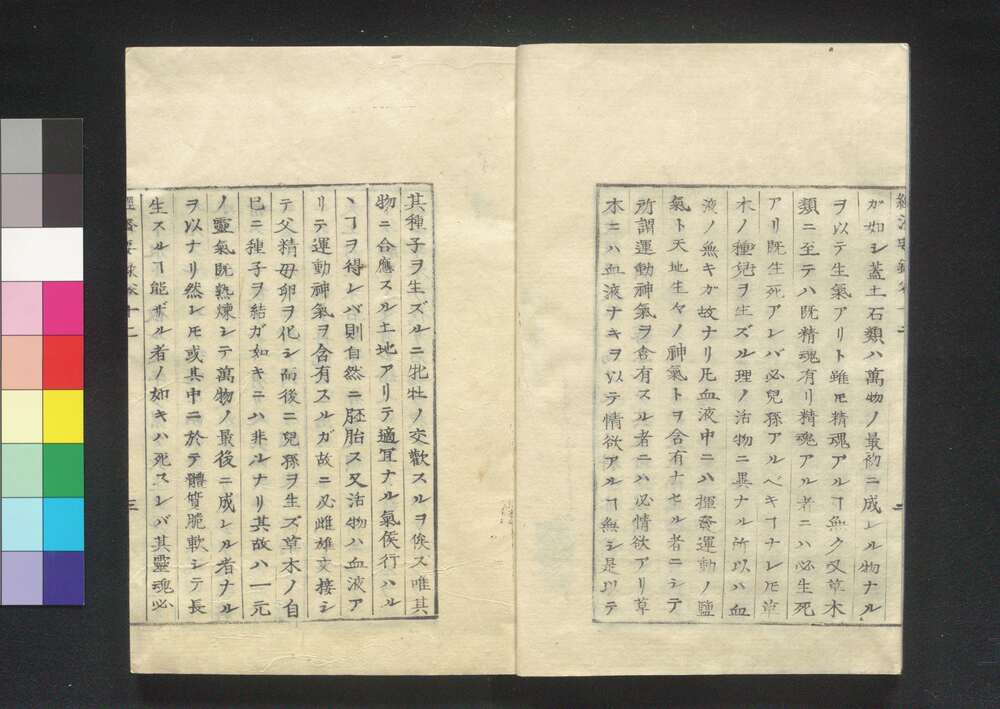 ガ如シ蓋土石類ハ萬物ノ最初ニ成レル物ナル
ヲ以テ生氣アリト雖ㇸ精魂アルヿ無ク又草木
類ニ至テハ既精魂有リ精魂アル者ニハ必生死
アリ既生死アレバ必兒孫アルベキヿナレㇸ草
木ノ種兒ヲ生ズル理ノ活物ニ異ナル所以ハ血
液ノ無キガ故ナリ凡血液中ニハ揮發運動ノ鹽
氣ト天地生々ノ神氣トヲ含有ナセル者ニシテ
所謂運動神氣ヲ含有スル者ニハ必情欲アリ草
木ニハ血液ナキヲ以テ情欲アルヿ無シ是以テ
其種子ヲ生ズルニ牝牡ノ交歡スルヲ俟ス唯其
物ニ合應スル土地アリテ適宜ナル氣侯行ハル
ヽヿヲ得レバ則自然ニ胚胎ス又活物ハ血液ア
リテ運動神氣ヲ含有スルガ故ニ必雌雄交接シ
テ父精母卵ヲ化シ而後ニ兒孫ヲ生ズ草木ノ自
已ニ種子ヲ結ガ如キニハ非ルナリ其故ハ一元
ノ靈氣既熟煉シテ萬物ノ最後ニ成レル者ナル
ヲ以ナリ然レㇸ或其中ニ於テ體質脆軟シテ長
生スルヿ能ザル者ノ如キハ死スレバ其靈魂必
三